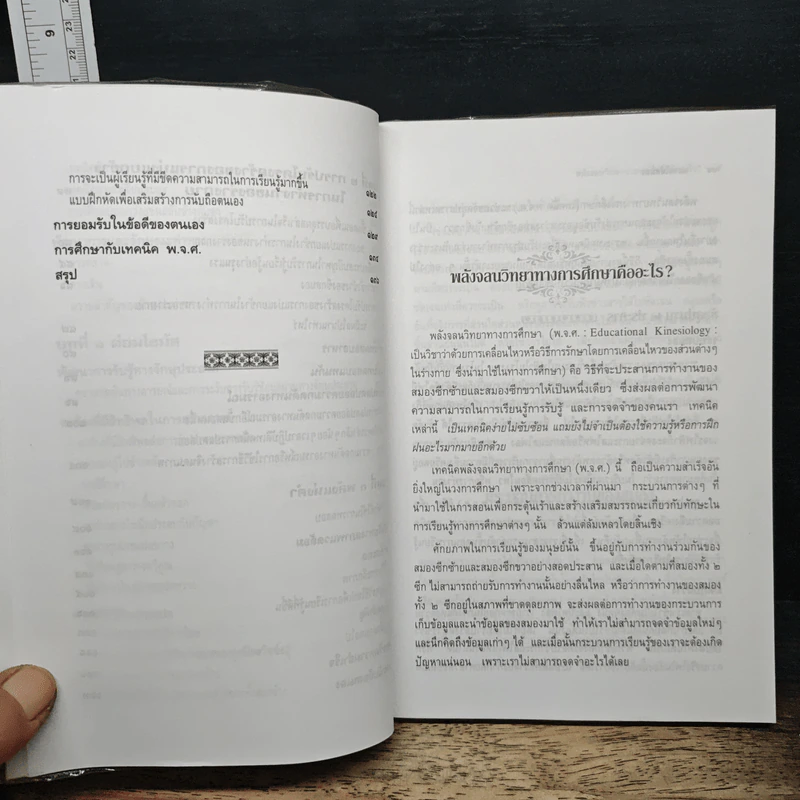 9
23
22
21
การจะเป็นผู้เรียนรู้ที่มีขีดความสามารถในการเรียนรู้มากขึ้น ๑๒๒
แบบฝึกหัดเพื่อเสริมสร้างการนับถือตนเอง ๑๒๕
การยอมรับในข้อดีของตนเอง ๑๒๙
การศึกษากับเทคนิค พ.จ.ศ. ๑๓๕
สรุป ๑๙๖
พลังจลนวิทยาทางการศึกษาคืออะไร?
พลังจลนวิทยาทางการศึกษา (พ.จ.ศ. : Educational Kinesiology :
เป็นวิชาว่าด้วยการเคลื่อนไหวหรือวิธีการรักษาโดยการเคลื่อนไหวของส่วนต่างๆ
ในร่างกาย ซึ่งนำมาใช้ในทางการศึกษา) คือ วิธีที่จะประสานการทำงานของ
สมองซีกซ้ายและสมองซีกขวาให้เป็นหนึ่งเดียว ซึ่งส่งผลต่อการพัฒนา
ความสามารถในการเรียนรู้การรับรู้ และการจดจำของคนเรา เทคนิค
เหล่านี้ เป็นเทคนิคง่ายไม่ซับซ้อน แถมยังไม่จำเป็นต้องใช้ความรู้หรือการฝึก
ฝนอะไรมากมายอีกด้วย
เทคนิคพลังจลนวิทยาทางการศึกษา (พ.จ.ศ.) นี้ ถือเป็นความสำเร็จอัน
ยิ่งใหญ่ในวงการศึกษา เพราะจากช่วงเวลาที่ผ่านมา กระบวนการต่างๆ ที่
นำมาใช้ในการสอนเพื่อกระตุ้นเร้าและสร้างเสริมสมรรถนะเกี่ยวกับทักษะใน
การเรียนรู้ทางการศึกษาต่างๆ นั้น ล้วนแต่ล้มเหลวโดยสิ้นเชิง
ศักยภาพในการเรียนรู้ของมนุษย์นั้น ขึ้นอยู่กับการทำงานร่วมกันของ
สมองซีกซ้ายและสมองซีกขวาอย่างสอดประสาน และเมื่อใดตามที่สมองทั้ง ๒
ซีก ไม่สามารถถ่ายรับการทำงานนั้นอย่างลื่นไหล หรือว่าการทำงานของสมอง
ทั้ง ๒ ซีกอยู่ในสภาพที่ขาดดุลยภาพ จะส่งผลต่อการทำงานของกระบวนการ
เก็บข้อมูลและนำข้อมูลของสมองมาใช้ ทำให้เราไม่สามารถจดจำข้อมูลใหม่ๆ
และนึกคิดถึงข้อมูลเก่าๆ ได้ และเมื่อนั้นกระบวนการเรียนรู้ของเราจะต้องเกิด
ปัญหาแน่นอน เพราะเราไม่สามารถจดจำอะไรได้เลย